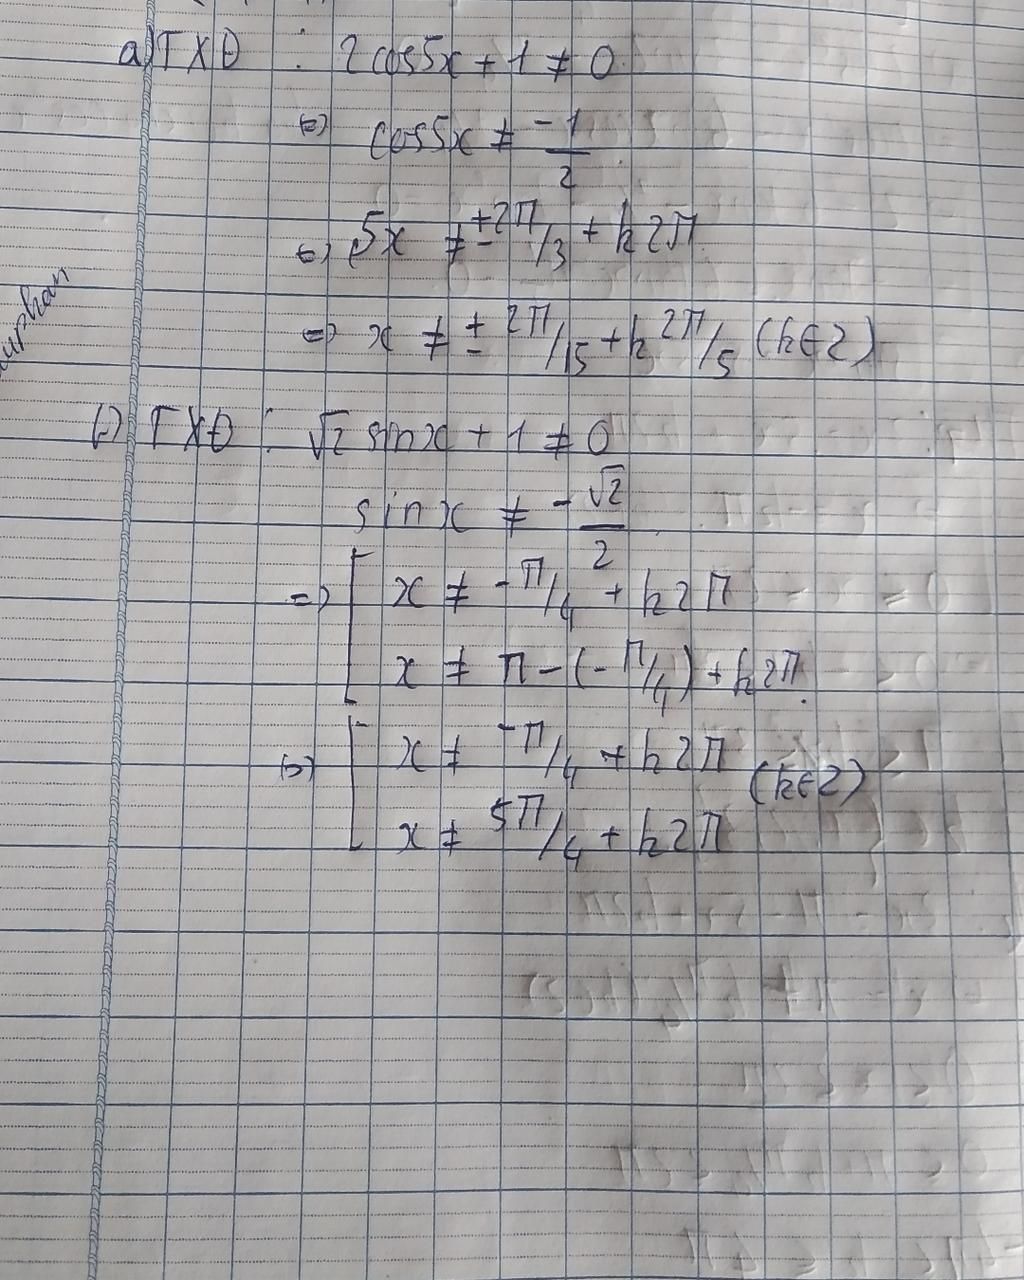 a) TXĐ : 2cos5x + 1 ≠ 0
⇔ cos5x ≠ -1/2
⇔ 5x ≠ ±2π/3 + k2π
⇒ x ≠ ± 2π/15 + k 2π/5 (k∈Z)
TXĐ : √2 sinx + 1 ≠ 0
sin x ≠ -√2/2
⇒ [ x ≠ -π/4 + k2π
x ≠ π - (-π/4) + k2π
⇔ [ x ≠ -π/4 + k2π (k∈Z)
x ≠ 5π/4 + k2π